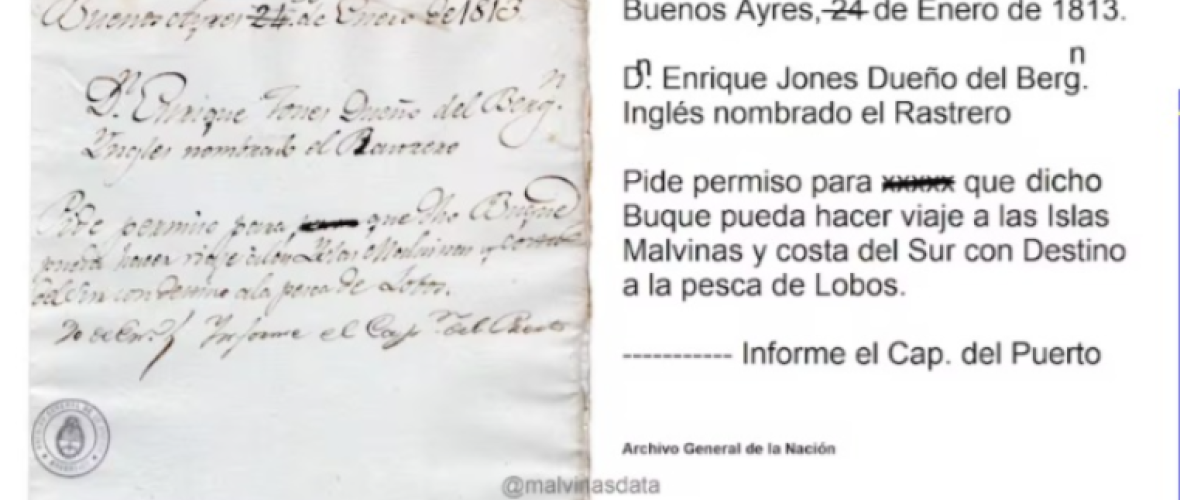 Buenos Ayres 24 de Enero de 1813.
Dn. Enrique Jones Dueño del Bergn.
Yngles nombrado el Rastrero
Pide permiso para que dho Buque
pueda hacer viaje a las Yslas Malvinas y costa
del Sur con destino a la pesca de Lobos.
Informe el Cap.n del Puerto
Buenos Ayres, 24 de Enero de 1813.
Dn. Enrique Jones Dueño del Bergn.
Inglés nombrado el Rastrero
Pide permiso para xxxxx que dicho
Buque pueda hacer viaje a las Islas
Malvinas y costa del Sur con Destino
a la pesca de Lobos.
----------- Informe el Cap. del Puerto
Archivo General de la Nación
@malvinasdata